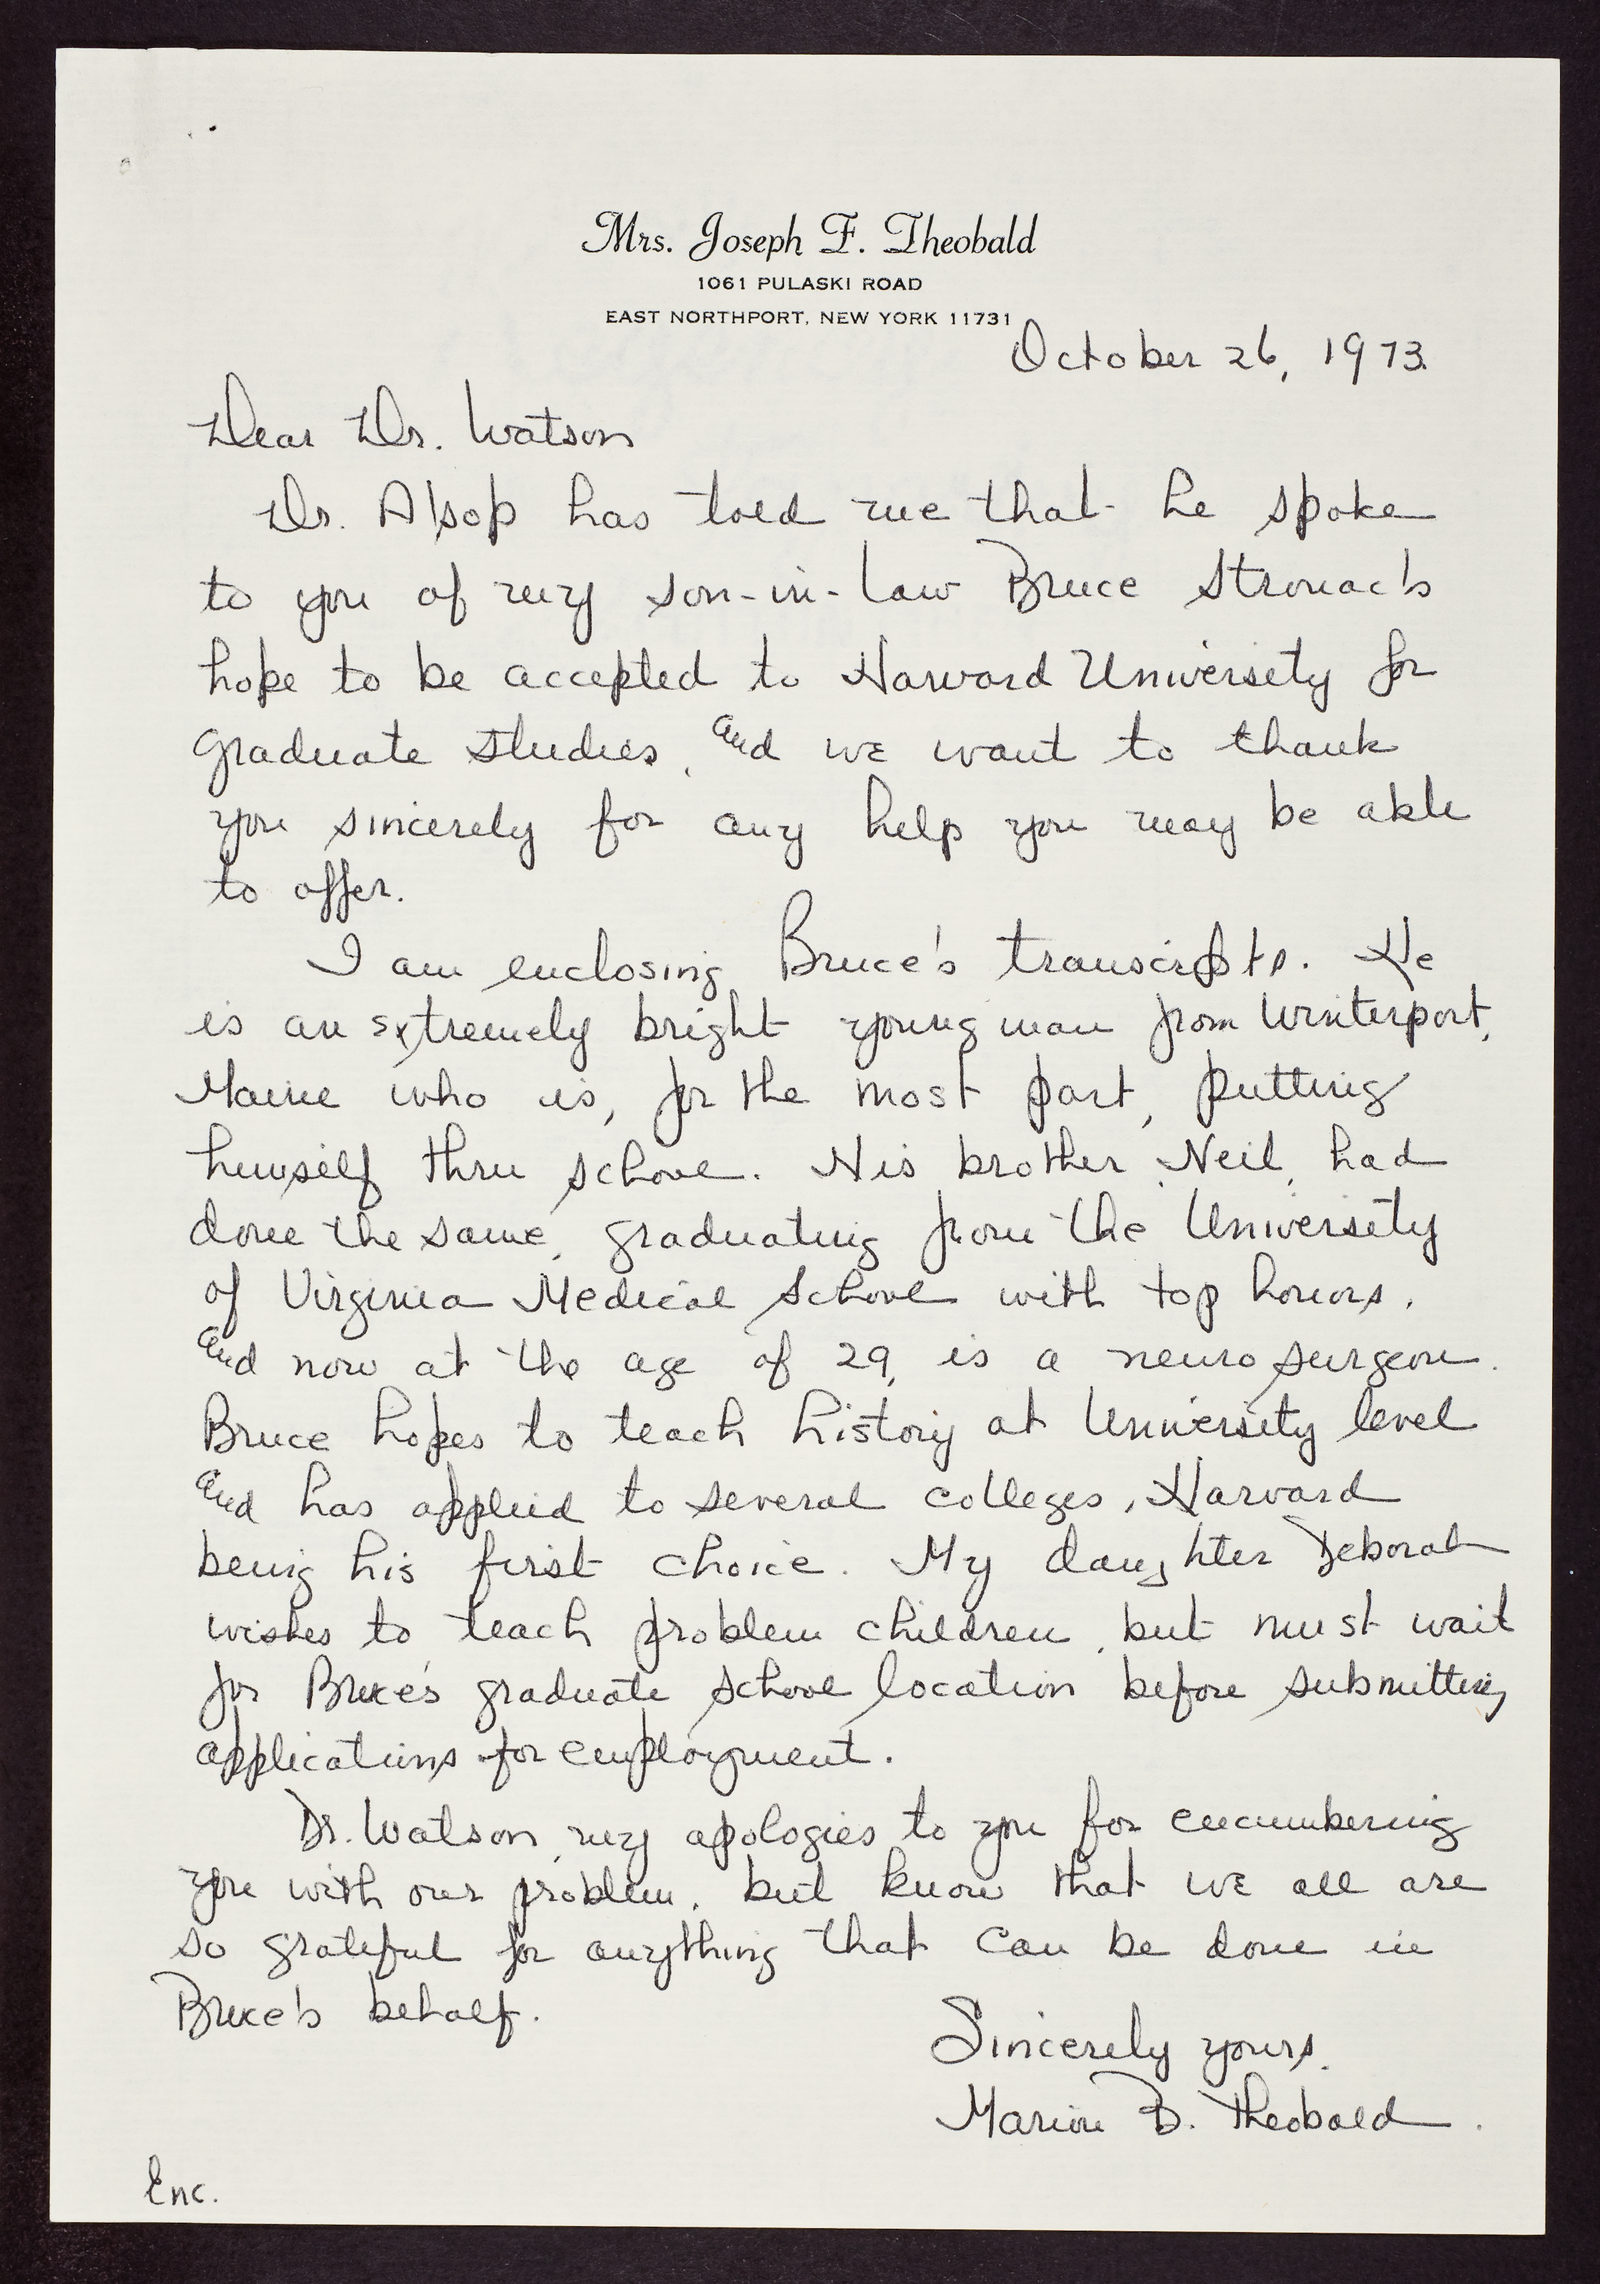 Mrs. Joseph F. Theobald
1061 PULASKI ROAD
EAST NORTHPORT, NEW YORK 11731
October 26, 1973.
Dear Dr. Watson
Dr. Alsop has told me that he spoke
to you of my son-in-law Bruce Stronach's
hope to be accepted to Harvard University for
graduate studies, and we want to thank
you sincerely for any help you may be able
to offer.
I am enclosing Bruce's transcripts. He
is an extremely bright young man from Winterport,
Maine who is, for the most part, putting
himself thru school. His brother, Neil, had
done the same, graduating from the University
of Virginia Medical School with top honors,
and now at the age of 29, is a neuro surgeon.
Bruce hopes to teach history at University level
and has applied to several colleges, Harvard
being his first choice. My daughter Deborah
wishes to teach problem children, but must wait
for Bruce's graduate school location before submitting
applications for employment.
Dr. Watson, my apologies to you for encumbering
you with our problem, but know that we all are
so grateful for anything that can be done in
Bruce's behalf.
Sincerely yours,
Marion B. Theobald.
Enc.